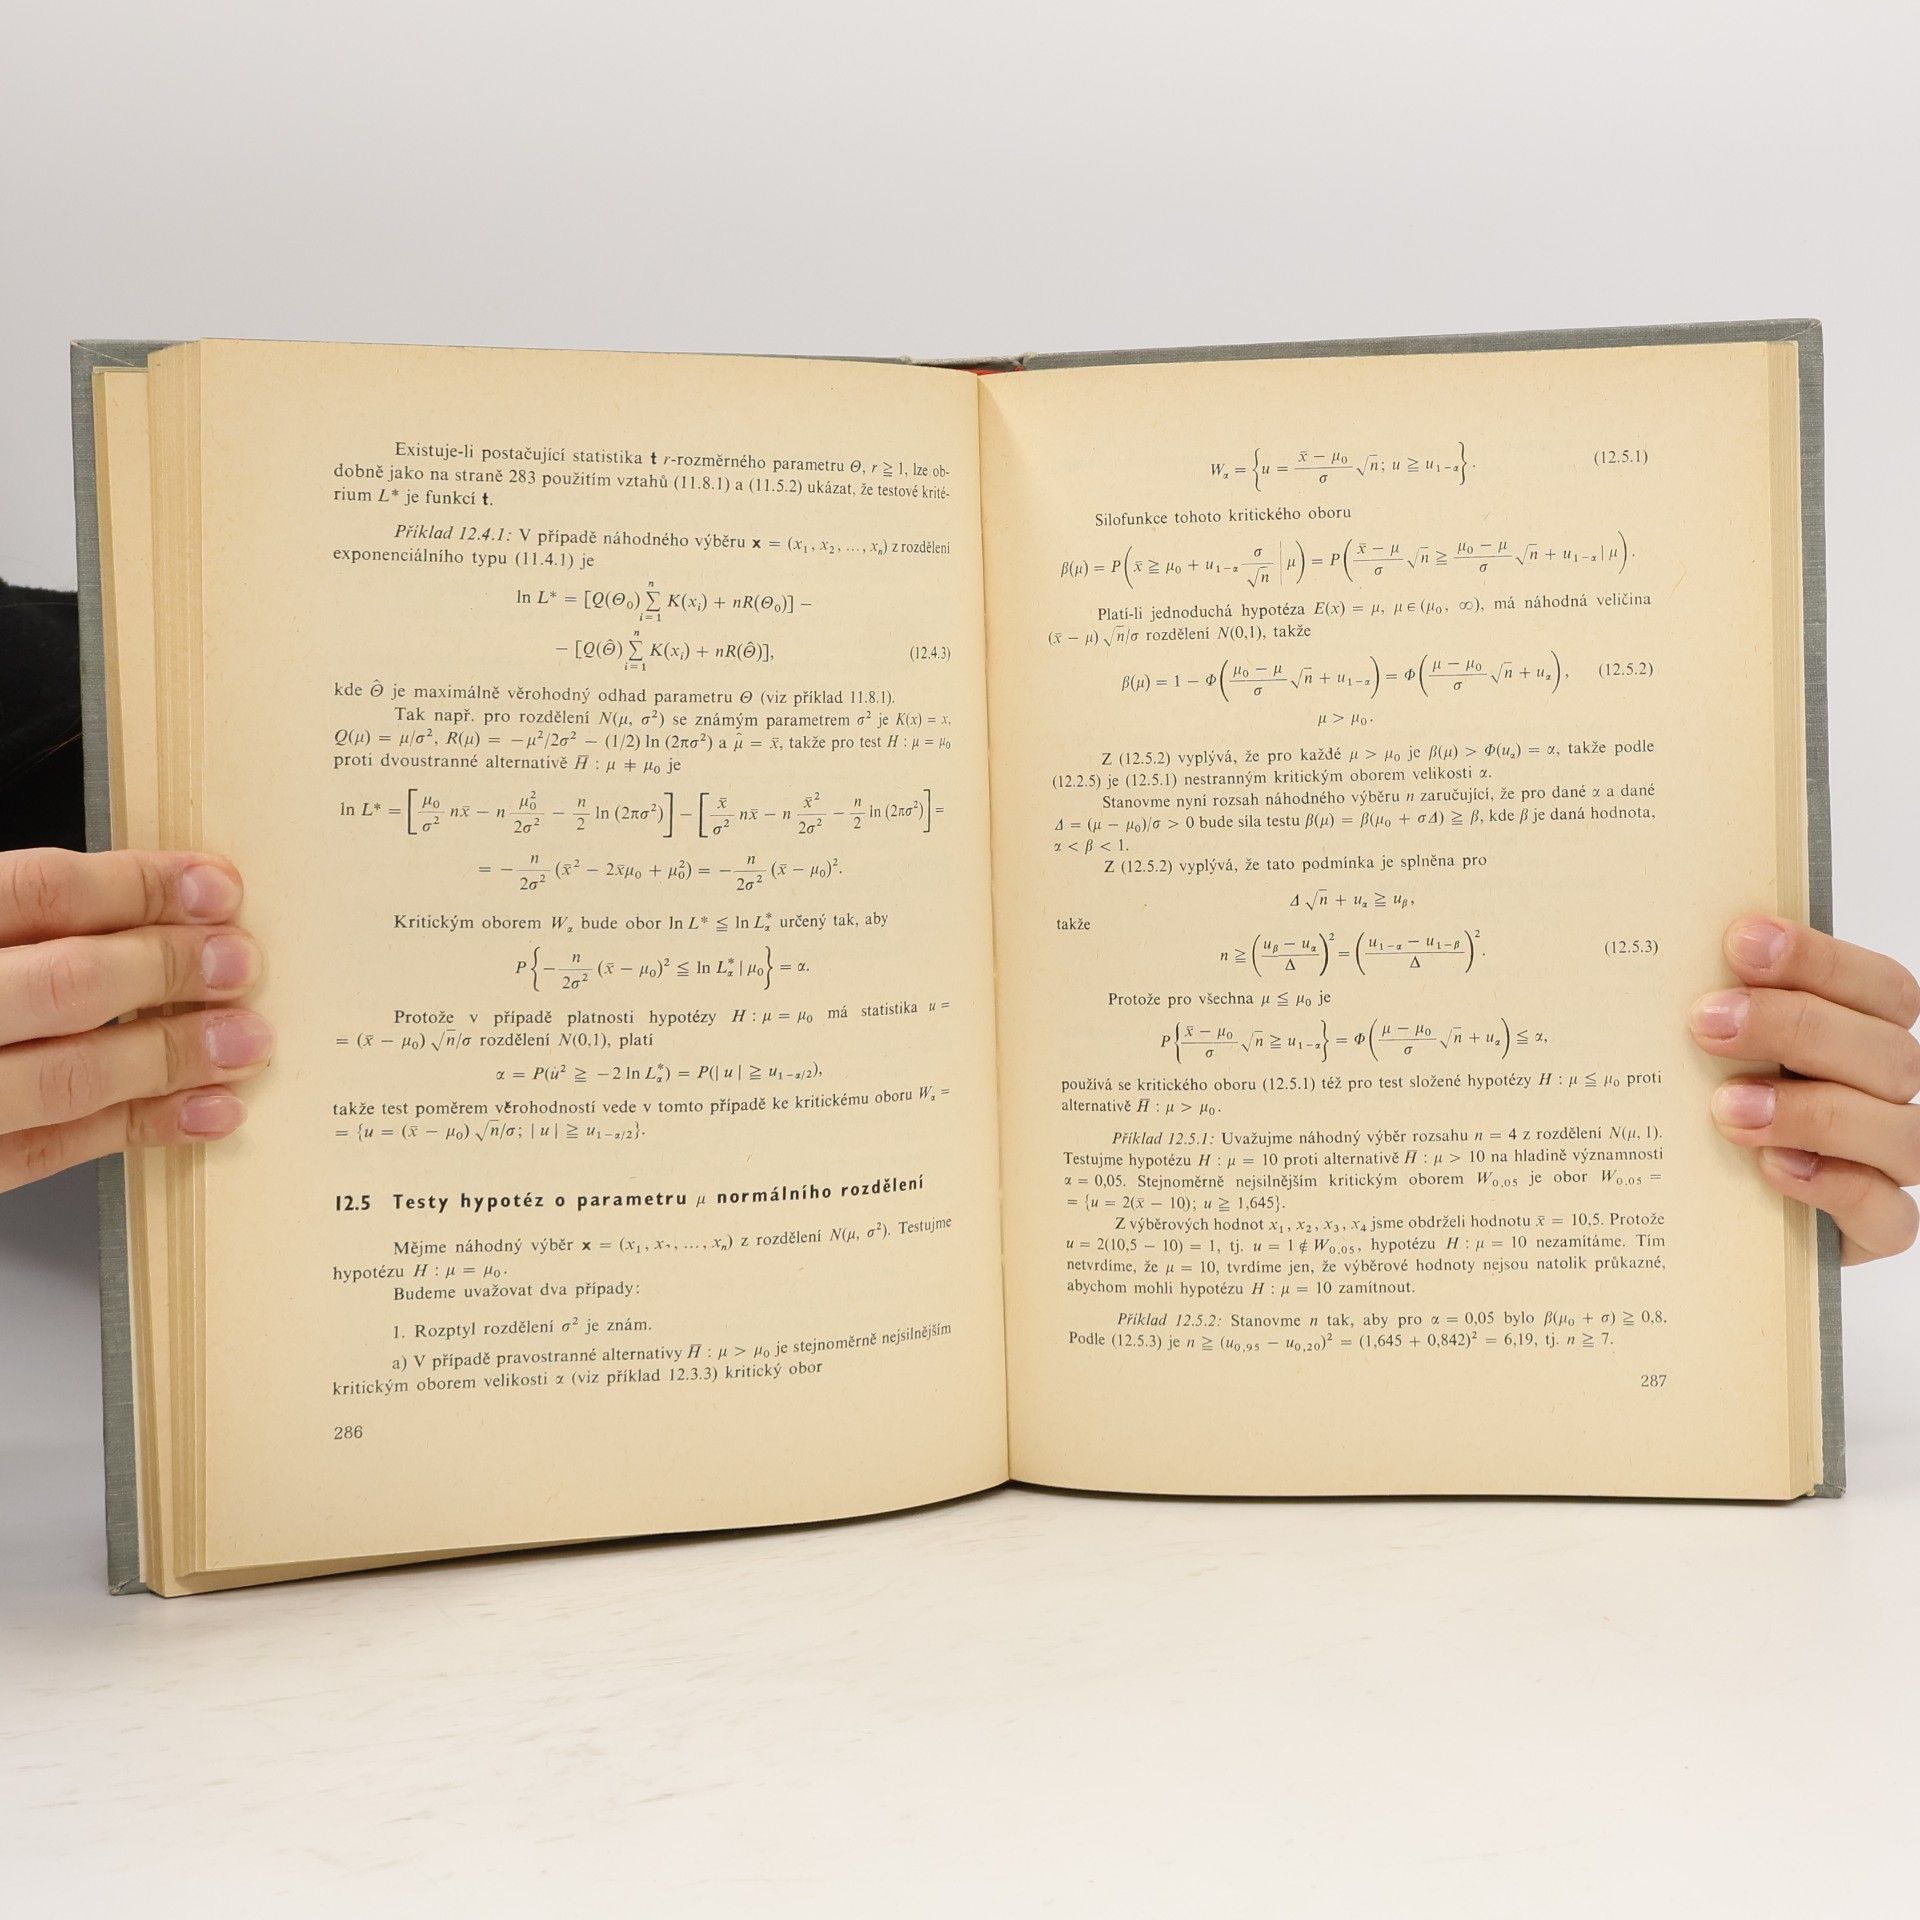 Existuje-li postačující statistika t r-rozměrného parametru Θ, r ≧ 1, lze ob-
dobně jako na straně 283 použitím vztahů (11.8.1) a (11.5.2) ukázat, že testové krité-
rium L* je funkcí t.
Příklad 12.4.1: V případě náhodného výběru x = (x₁, x₂, ..., xₙ) z rozdělení
exponenciálního typu (11.4.1) je
ln L* = [Q(Θ₀) ∑ᵢ₌₁ⁿ K(xᵢ) + nR(Θ₀)] −
− [Q(Θ̂) ∑ᵢ₌₁ⁿ K(xᵢ) + nR(Θ̂)], (12.4.3)
kde Θ̂ je maximálně věrohodný odhad parametru Θ (viz příklad 11.8.1).
Tak např. pro rozdělení N(μ, σ²) se známým parametrem σ² je K(x) = x,
Q(μ) = μ/σ², R(μ) = −μ²/2σ² − (1/2) ln (2πσ²) a μ̂ = x̄, takže pro test H : μ = μ₀
proti dvoustranné alternativě H̄ : μ ≠ μ₀ je
ln L* = [μ₀/σ² nx̄ − n μ₀²/2σ² − n/2 ln (2πσ²)] − [x̄/σ² nx̄ − n x̄²/2σ² − n/2 ln (2πσ²)] =
= − n/2σ² (x̄² − 2x̄μ₀ + μ₀²) = − n/2σ² (x̄ − μ₀)².
Kritickým oborem W_α bude obor ln L* ≦ ln L*_α určený tak, aby
P{− n/2σ² (x̄ − μ₀)² ≦ ln L*_α | μ₀} = α.
Protože v případě platnosti hypotézy H : μ = μ₀ má statistika u =
= (x̄ − μ₀) √n/σ rozdělení N(0,1), platí
α = P(u² ≧ −2 ln L*_α) = P(| u | ≧ u_{1−α/2}),
takže test poměrem věrohodností vede v tomto případě ke kritickému oboru W_α =
= {u = (x̄ − μ₀) √n/σ; | u | ≧ u_{1−α/2}}.
12.5 Testy hypotéz o parametru μ normálního rozdělení
Mějme náhodný výběr x = (x₁, x₂, ..., xₙ) z rozdělení N(μ, σ²). Testujme
hypotézu H : μ = μ₀.
Budeme uvažovat dva případy:
1. Rozptyl rozdělení σ² je znám.
a) V případě pravostranné alternativy H̄ : μ > μ₀ je stejnoměrně nejsilnějším
kritickým oborem velikosti α (viz příklad 12.3.3) kritický obor
286
W_α = {u = (x̄ − μ₀)/σ √n; u ≧ u_{1−α}}. (12.5.1)
Silofunkce tohoto kritického oboru
β(μ) = P(x̄ ≧ μ₀ + u_{1−α} σ/√n | μ) = P((x̄ − μ)/σ √n ≧ (μ₀ − μ)/σ √n + u_{1−α} | μ).
Platí-li jednoduchá hypotéza E(x) = μ, μ ∈ (μ₀, ∞), má náhodná veličina
(x̄ − μ) √n/σ rozdělení N(0,1), takže
β(μ) = 1 − Φ((μ₀ − μ)/σ √n + u_{1−α}) = Φ((μ − μ₀)/σ √n + u_α), (12.5.2)
μ > μ₀.
Z (12.5.2) vyplývá, že pro každé μ > μ₀ je β(μ) > Φ(u_α) = α, takže podle
(12.2.5) je (12.5.1) nestranným kritickým oborem velikosti α.
Stanovme nyní rozsah náhodného výběru n zaručující, že pro dané α a dané
Δ = (μ − μ₀)/σ > 0 bude síla testu β(μ) = β(μ₀ + σΔ) ≧ β, kde β je daná hodnota,
α < β < 1.
Z (12.5.2) vyplývá, že tato podmínka je splněna pro
Δ √n + u_α ≧ u_β,
takže
n ≧ ((u_β − u_α)/Δ)² = ((u_{1−α} − u_{1−β})/Δ)². (12.5.3)
Protože pro všechna μ ≦ μ₀ je
P{(x̄ − μ₀)/σ √n ≧ u_{1−α}} = Φ((μ − μ₀)/σ √n + u_α) ≦ α,
používá se kritického oboru (12.5.1) též pro test složené hypotézy H : μ ≦ μ₀ proti
alternativě H̄ : μ > μ₀.
Příklad 12.5.1: Uvažujme náhodný výběr rozsahu n = 4 z rozdělení N(μ, 1).
Testujme hypotézu H : μ = 10 proti alternativě H̄ : μ > 10 na hladině významnosti
α = 0,05. Stejnoměrně nejsilnějším kritickým oborem W₀,₀₅ je obor W₀,₀₅ =
= {u = 2(x̄ − 10); u ≧ 1,645}.
Z výběrových hodnot x₁, x₂, x₃, x₄ jsme obdrželi hodnotu x̄ = 10,5. Protože
u = 2(10,5 − 10) = 1, tj. u = 1 ∉ W₀,₀₅, hypotézu H : μ = 10 nezamítáme. Tím
netvrdíme, že μ = 10, tvrdíme jen, že výběrové hodnoty nejsou natolik průkazné,
abychom mohli hypotézu H : μ = 10 zamítnout.
Příklad 12.5.2: Stanovme n tak, aby pro α = 0,05 bylo β(μ₀ + σ) ≧ 0,8.
Podle (12.5.3) je n ≧ (u₀,₉₅ − u₀,₂₀)² = (1,645 + 0,842)² = 6,19, tj. n ≧ 7.
287